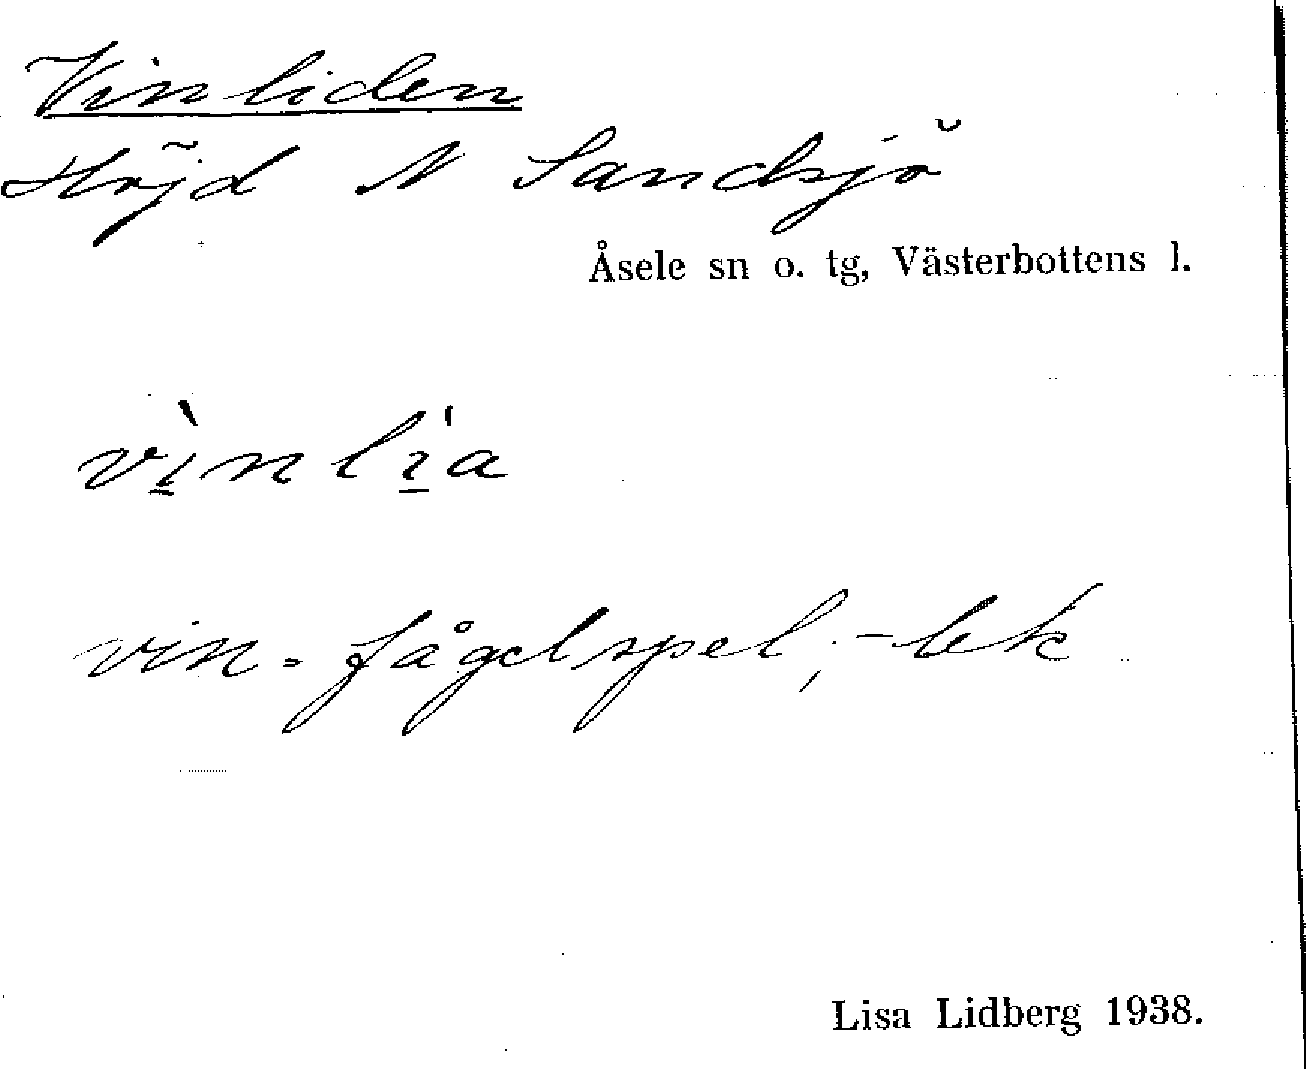 Vinliden
Höjd N Sandsjö
Åsele sn o. tg, Västerbottens l.
vì̱nlí̱a
vin = fågelspel, -lek
Lisa Lidberg 1938.